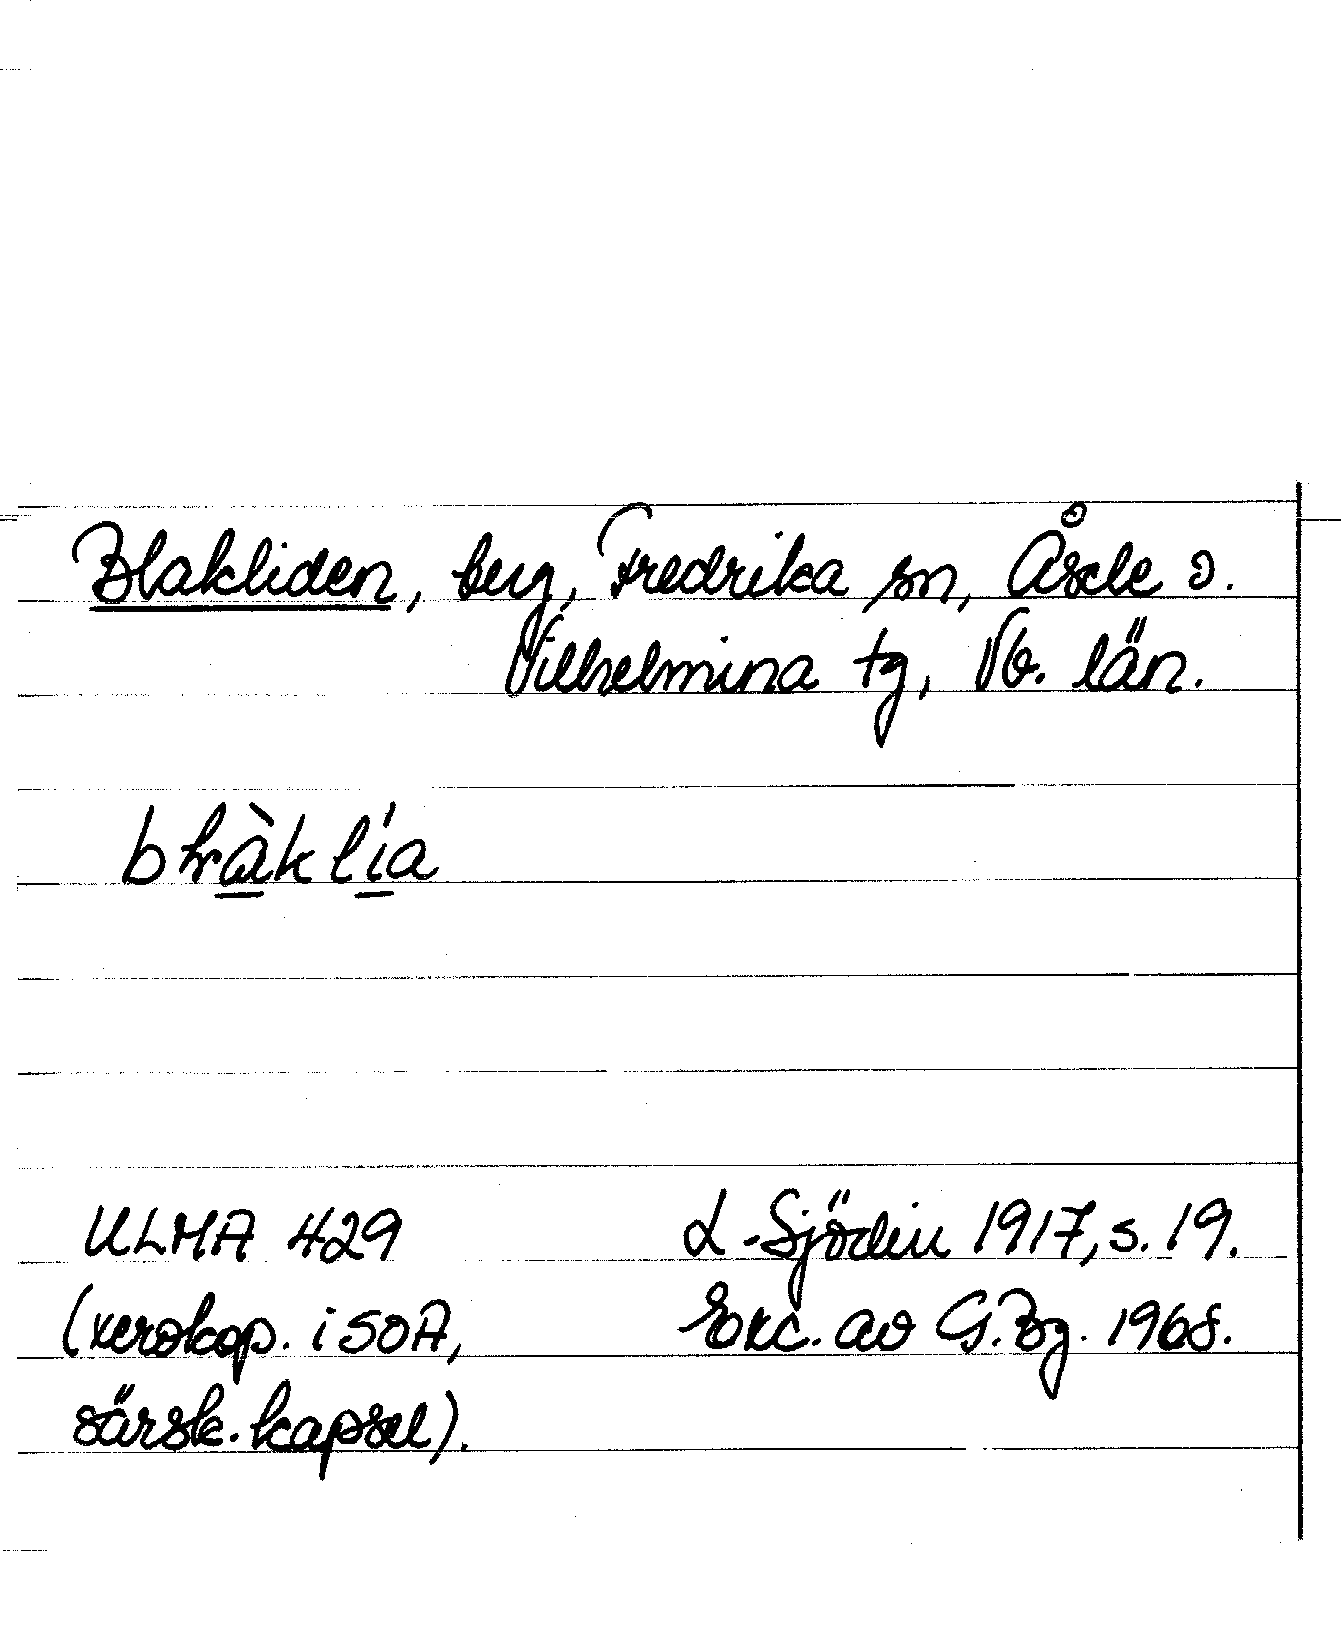 Blakliden, berg, Fredrika sn, Åsele o.
Vilhelmina tg, Vb. län.
blràklía
ULMA 429
(xerokop. i SOA,
särsk. kapsel).
L. Sjödin 1917, s. 19.
Exc. av G. Bg. 1968.